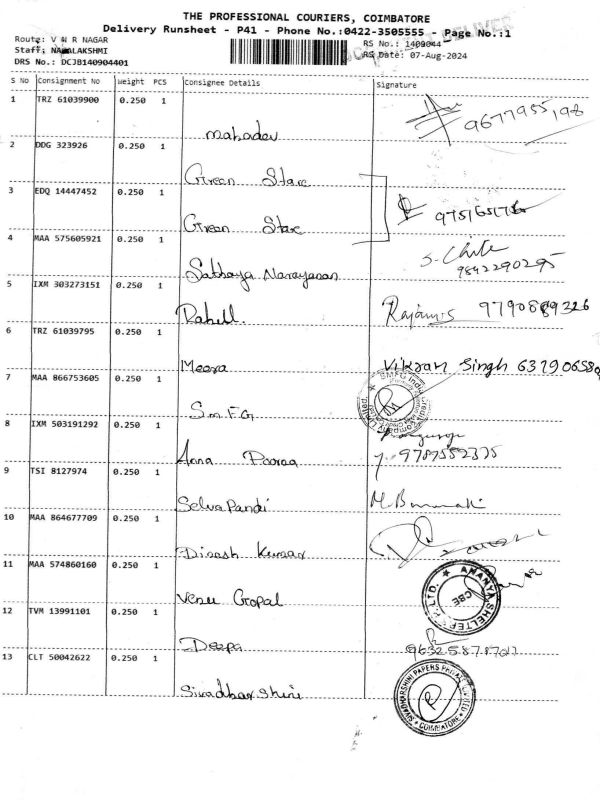 THE PROFESSIONAL COURIERS, COIMBATORE
Delivery Runsheet - P41 - Phone No.:0422-3505555 - Page No.:1
Route: V N R NAGAR
RS No.: 1409044
Staff: NAGALAKSHMI
RS Date: 07-Aug-2024
DRS No.: DCJB140904401
S No Consignment No Weight PCS Consignee Details Signature
1 TRZ 61039900 0.250 1
Mahadev 9677955198
2 DDG 323926 0.250 1
Green Star
3 EDQ 14447452 0.250 1
Green Star
4 MAA 575605921 0.250 1
Sathaya Narayanan 9842290295
5 IXM 303273151 0.250 1
Rahell. 9790889226
6 TRZ 61039795 0.250 1
Meera Vikram Singh
7 MAA 866753605 0.250 1
S.M.F.G
8 IXM 503191292 0.250 1
Anna 9789552375
9 TSI 8127974 0.250 1
Selva Pandi
10 MAA 864677709 0.250 1
Dinash Kumar
11 MAA 574860160 0.250 1
Venu Gopal
ANANYA SHELTERS P. LTD. CBE
12 TVM 13991101 0.250 1
Deepa
13 CLT 50042622 0.250 1
Sivadharshini
SIVADHARSHINI PAPERS PRIVATE LIMITED COIMBATORE